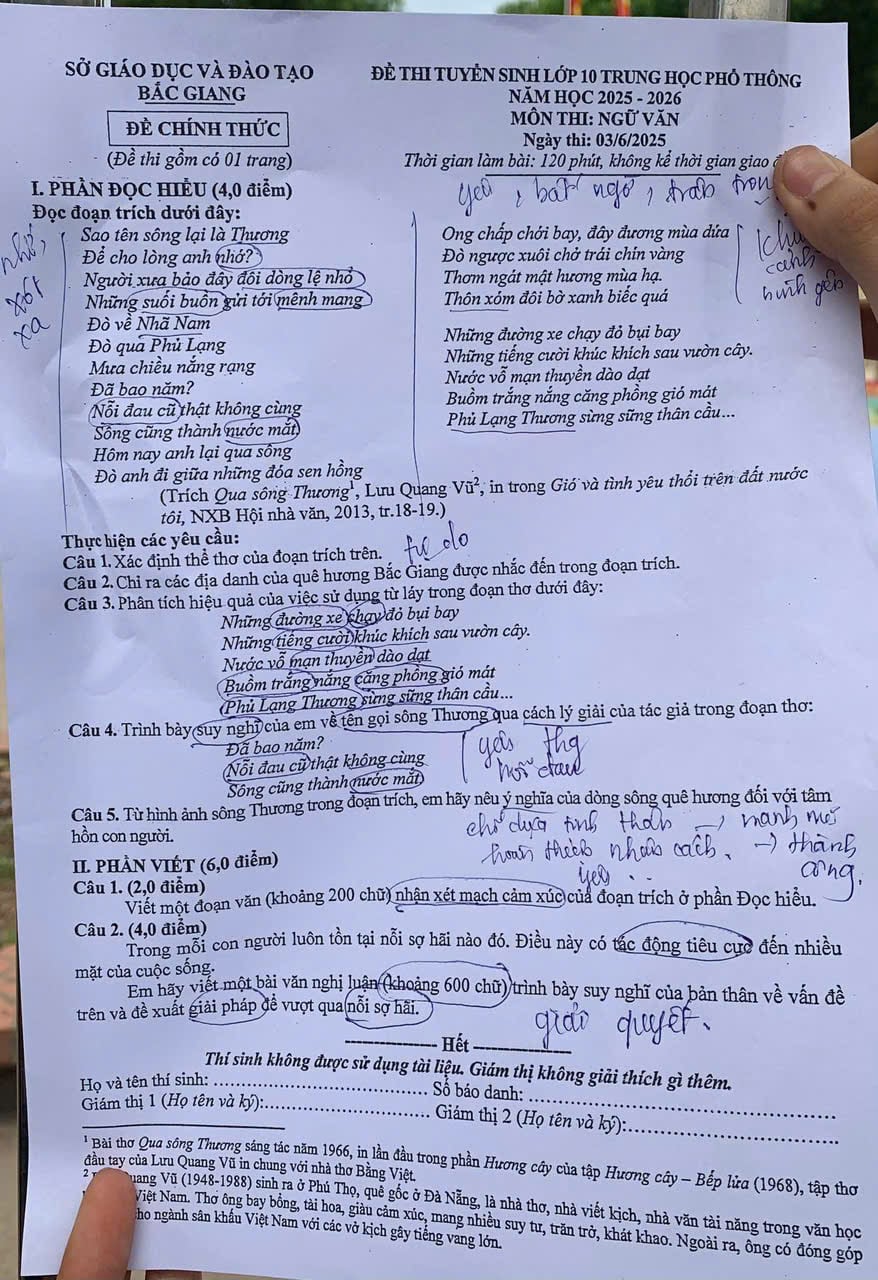 SỞ GIÁO DỤC VÀ ĐÀO TẠO
BẮC GIANG
ĐỀ CHÍNH THỨC
(Đề thi gồm có 01 trang)
ĐỀ THI TUYỂN SINH LỚP 10 TRUNG HỌC PHỔ THÔNG
NĂM HỌC 2025 - 2026
MÔN THI: NGỮ VĂN
Ngày thi: 03/6/2025
Thời gian làm bài: 120 phút, không kể thời gian giao
yêu, bất ngờ, trân trọn
I. PHẦN ĐỌC HIỂU (4,0 điểm)
Đọc đoạn trích dưới đây:
nhớ,
xót
xa
Sao tên sông lại là Thương
Để cho lòng anh nhớ?
Người xưa bảo đây đôi dòng lệ nhỏ
Những suối buồn gửi tới mênh mang
Đò về Nhã Nam
Đò qua Phủ Lạng
Mưa chiều nắng rạng
Đã bao năm?
Nỗi đau cũ thật không cùng
Sông cũng thành nước mắt
Hôm nay anh lại qua sông
Đò anh đi giữa những đóa sen hồng
Ong chấp chới bay, đây đương mùa dứa
Đò ngược xuôi chở trái chín vàng
Thơm ngát mật hương mùa hạ.
Thôn xóm đôi bờ xanh biếc quá
cảnh
Những đường xe chạy đỏ bụi bay
Những tiếng cười khúc khích sau vườn cây.
Nước vỗ mạn thuyền dào dạt
Buồm trắng nắng căng phồng gió mát
Phủ Lạng Thương sừng sững thân cầu...
(Trích Qua sông Thương1, Lưu Quang Vũ2, in trong Gió và tình yêu thổi trên đất nước
tôi, NXB Hội nhà văn, 2013, tr.18-19.)
Thực hiện các yêu cầu:
Câu 1. Xác định thể thơ của đoạn trích trên.
tự do
Câu 2. Chỉ ra các địa danh của quê hương Bắc Giang được nhắc đến trong đoạn trích.
Câu 3. Phân tích hiệu quả của việc sử dụng từ láy trong đoạn thơ dưới đây:
Những đường xe chạy đỏ bụi bay
Những tiếng cười khúc khích sau vườn cây.
Nước vỗ mạn thuyền dào dạt
Buồm trắng nắng căng phồng gió mát
Phủ Lạng Thương sừng sững thân cầu...
Câu 4. Trình bày suy nghĩ của em về tên gọi sông Thương qua cách lý giải của tác giả trong đoạn thơ:
Đã bao năm?
Nỗi đau cũ thật không cùng
Sông cũng thành nước mắt
yêu thg
nỗi đau
Câu 5. Từ hình ảnh sông Thương trong đoạn trích, em hãy nêu ý nghĩa của dòng sông quê hương đối với tâm
hồn con người.
chỗ dựa tinh thần → mạnh mẽ
hoàn thiện nhân cách. → thành
công.
yêu ..
II. PHẦN VIẾT (6,0 điểm)
Câu 1. (2,0 điểm)
Viết một đoạn văn (khoảng 200 chữ) nhận xét mạch cảm xúc của đoạn trích ở phần Đọc hiểu.
Câu 2. (4,0 điểm)
Trong mỗi con người luôn tồn tại nỗi sợ hãi nào đó. Điều này có tác động tiêu cực đến nhiều
mặt của cuộc sống.
Em hãy viết một bài văn nghị luận (khoảng 600 chữ) trình bày suy nghĩ của bản thân về vấn đề
trên và đề xuất giải pháp để vượt qua nỗi sợ hãi.
giải quyết.
Hết
Thí sinh không được sử dụng tài liệu. Giám thị không giải thích gì thêm.
Họ và tên thí sinh: ........................ Số báo danh: ........................
Giám thị 1 (Họ tên và ký):........................ Giám thị 2 (Họ tên và ký):........................
1 Bài thơ Qua sông Thương sáng tác năm 1966, in lần đầu trong phần Hương cây của tập Hương cây – Bếp lửa (1968), tập thơ
đầu tay của Lưu Quang Vũ in chung với nhà thơ Bằng Việt.
2 Quang Vũ (1948-1988) sinh ra ở Phú Thọ, quê gốc ở Đà Nẵng, là nhà thơ, nhà viết kịch, nhà văn tài năng trong văn học
Việt Nam. Thơ ông bay bổng, tài hoa, giàu cảm xúc, mang nhiều suy tư, trăn trở, khát khao. Ngoài ra, ông có đóng góp
cho ngành sân khấu Việt Nam với các vở kịch gây tiếng vang lớn.